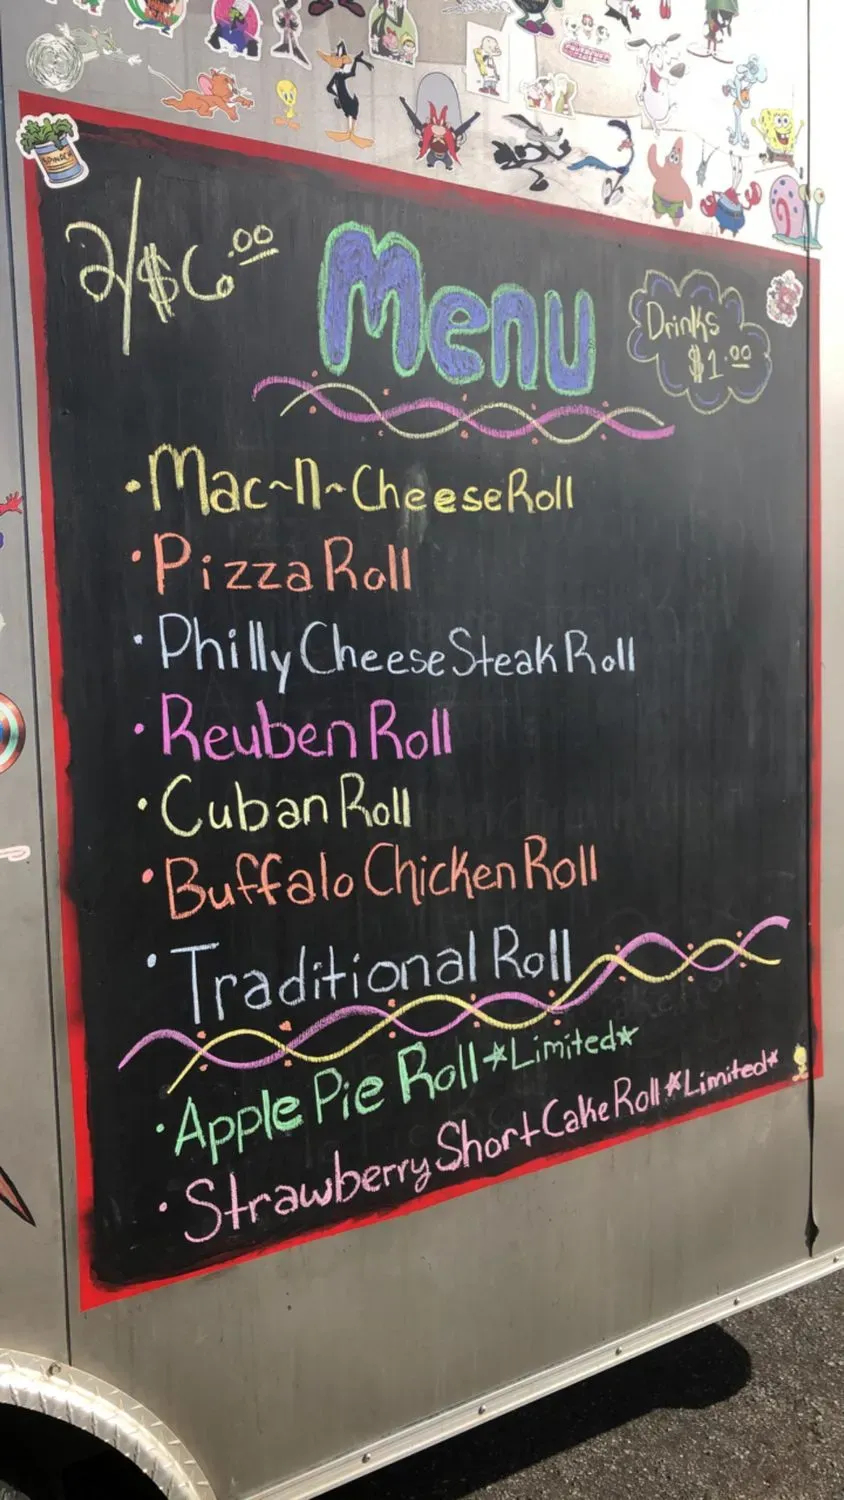 SPINACH
2/$6.00
Menu
Drinks
$1.00
•Mac~n~Cheese Roll
•Pizza Roll
•Philly Cheese Steak Roll
•Reuben Roll
•Cuban Roll
•Buffalo Chicken Roll
•Traditional Roll
•Apple Pie Roll *Limited*
•Strawberry Short Cake Roll *Limited*